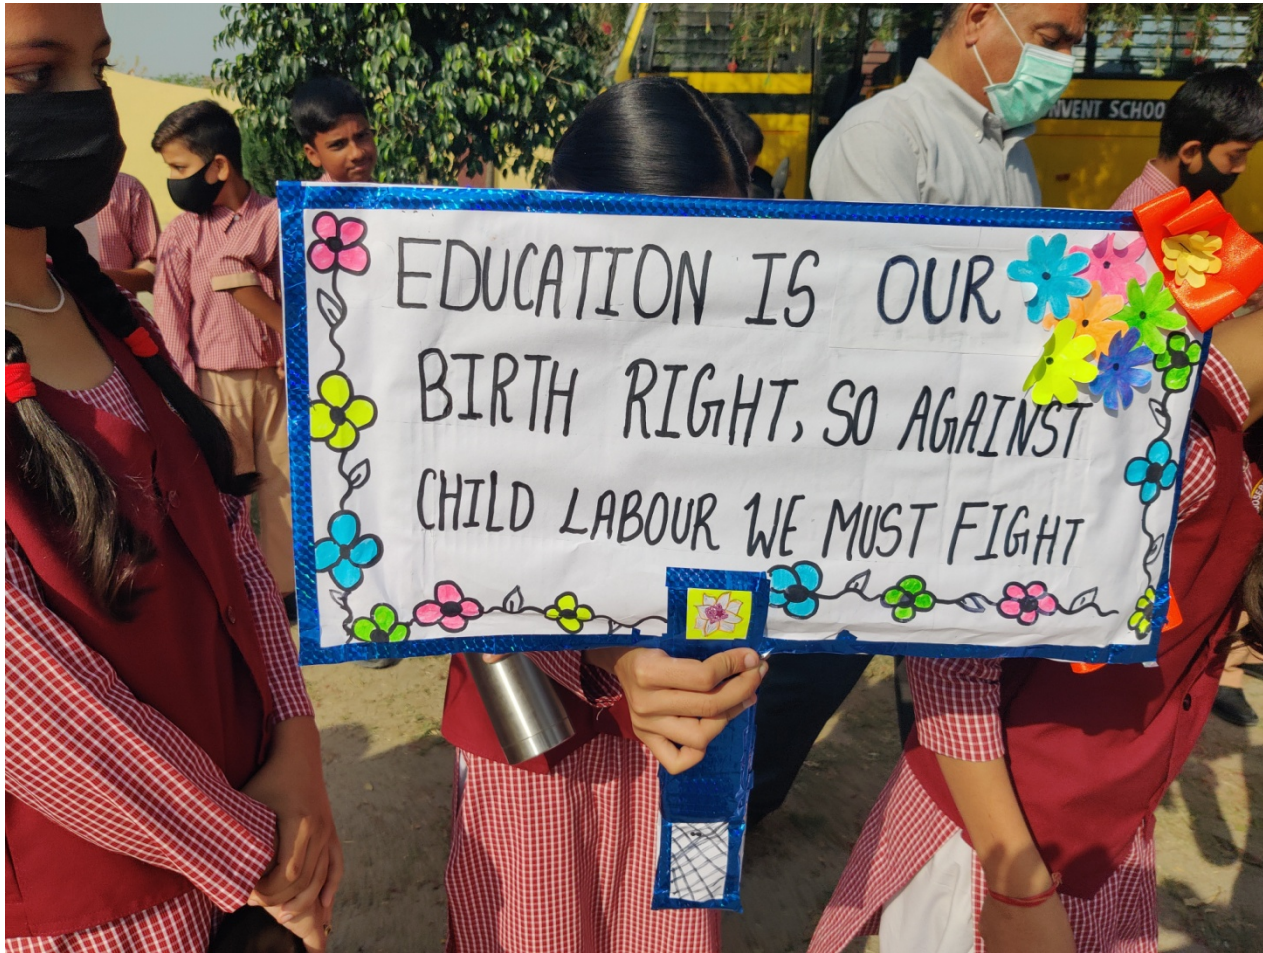 NVENT SCHOO
EDUCATION IS OUR
BIRTH RIGHT, SO AGAINST
CHILD LABOUR WE MUST FIGHT